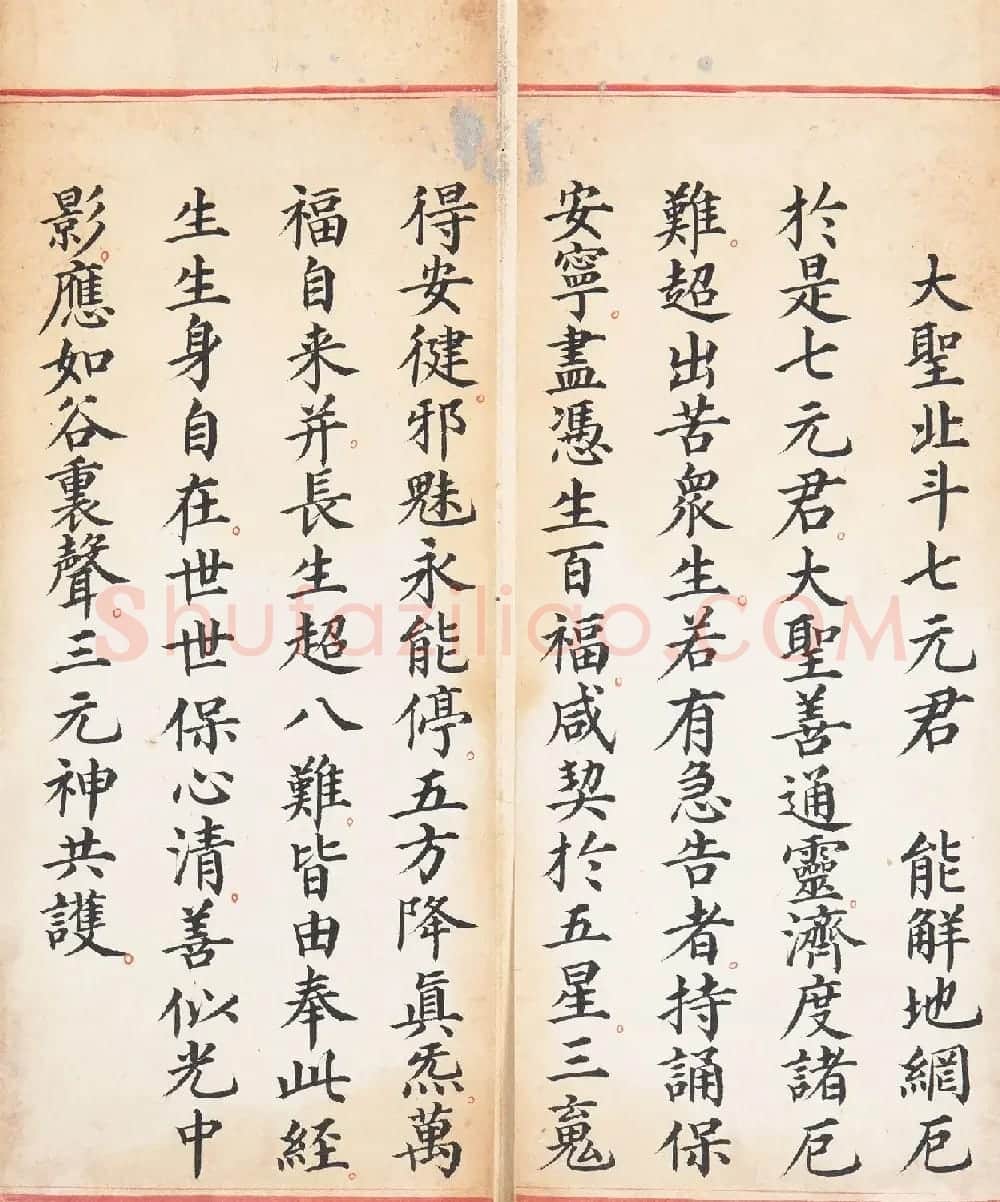 大聖北斗七元君　能解地網厄
於是七元君。大聖善通靈。濟度諸厄
難。超出苦衆生。若有急告者。持誦保
安寧。盡憑生百福。咸契於五星。三䰟
得安徤。邪魅永能停。五方降眞炁。萬
福自来并。長生超八難。皆由奉此経。
生生身自在。世世保心清。善似光中
影。應如谷裏聲。三元神共護。
Shufaziliao.COM